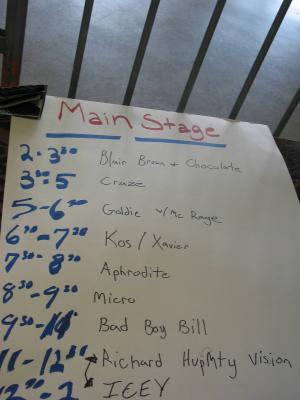 Main Stage
2-3³⁰ Blair Brown + Chocolate
3³⁰-5 Craze
5-6³⁰ Goldie w/Mc Rage
6³⁰-7³⁰ Kos / Xavier
7³⁰-8³⁰ Aphrodite
8³⁰-9³⁰ Micro
9³⁰-11 Bad Boy Bill
11-12³⁰ Richard HupMty Vision
12³⁰-2 ICEY